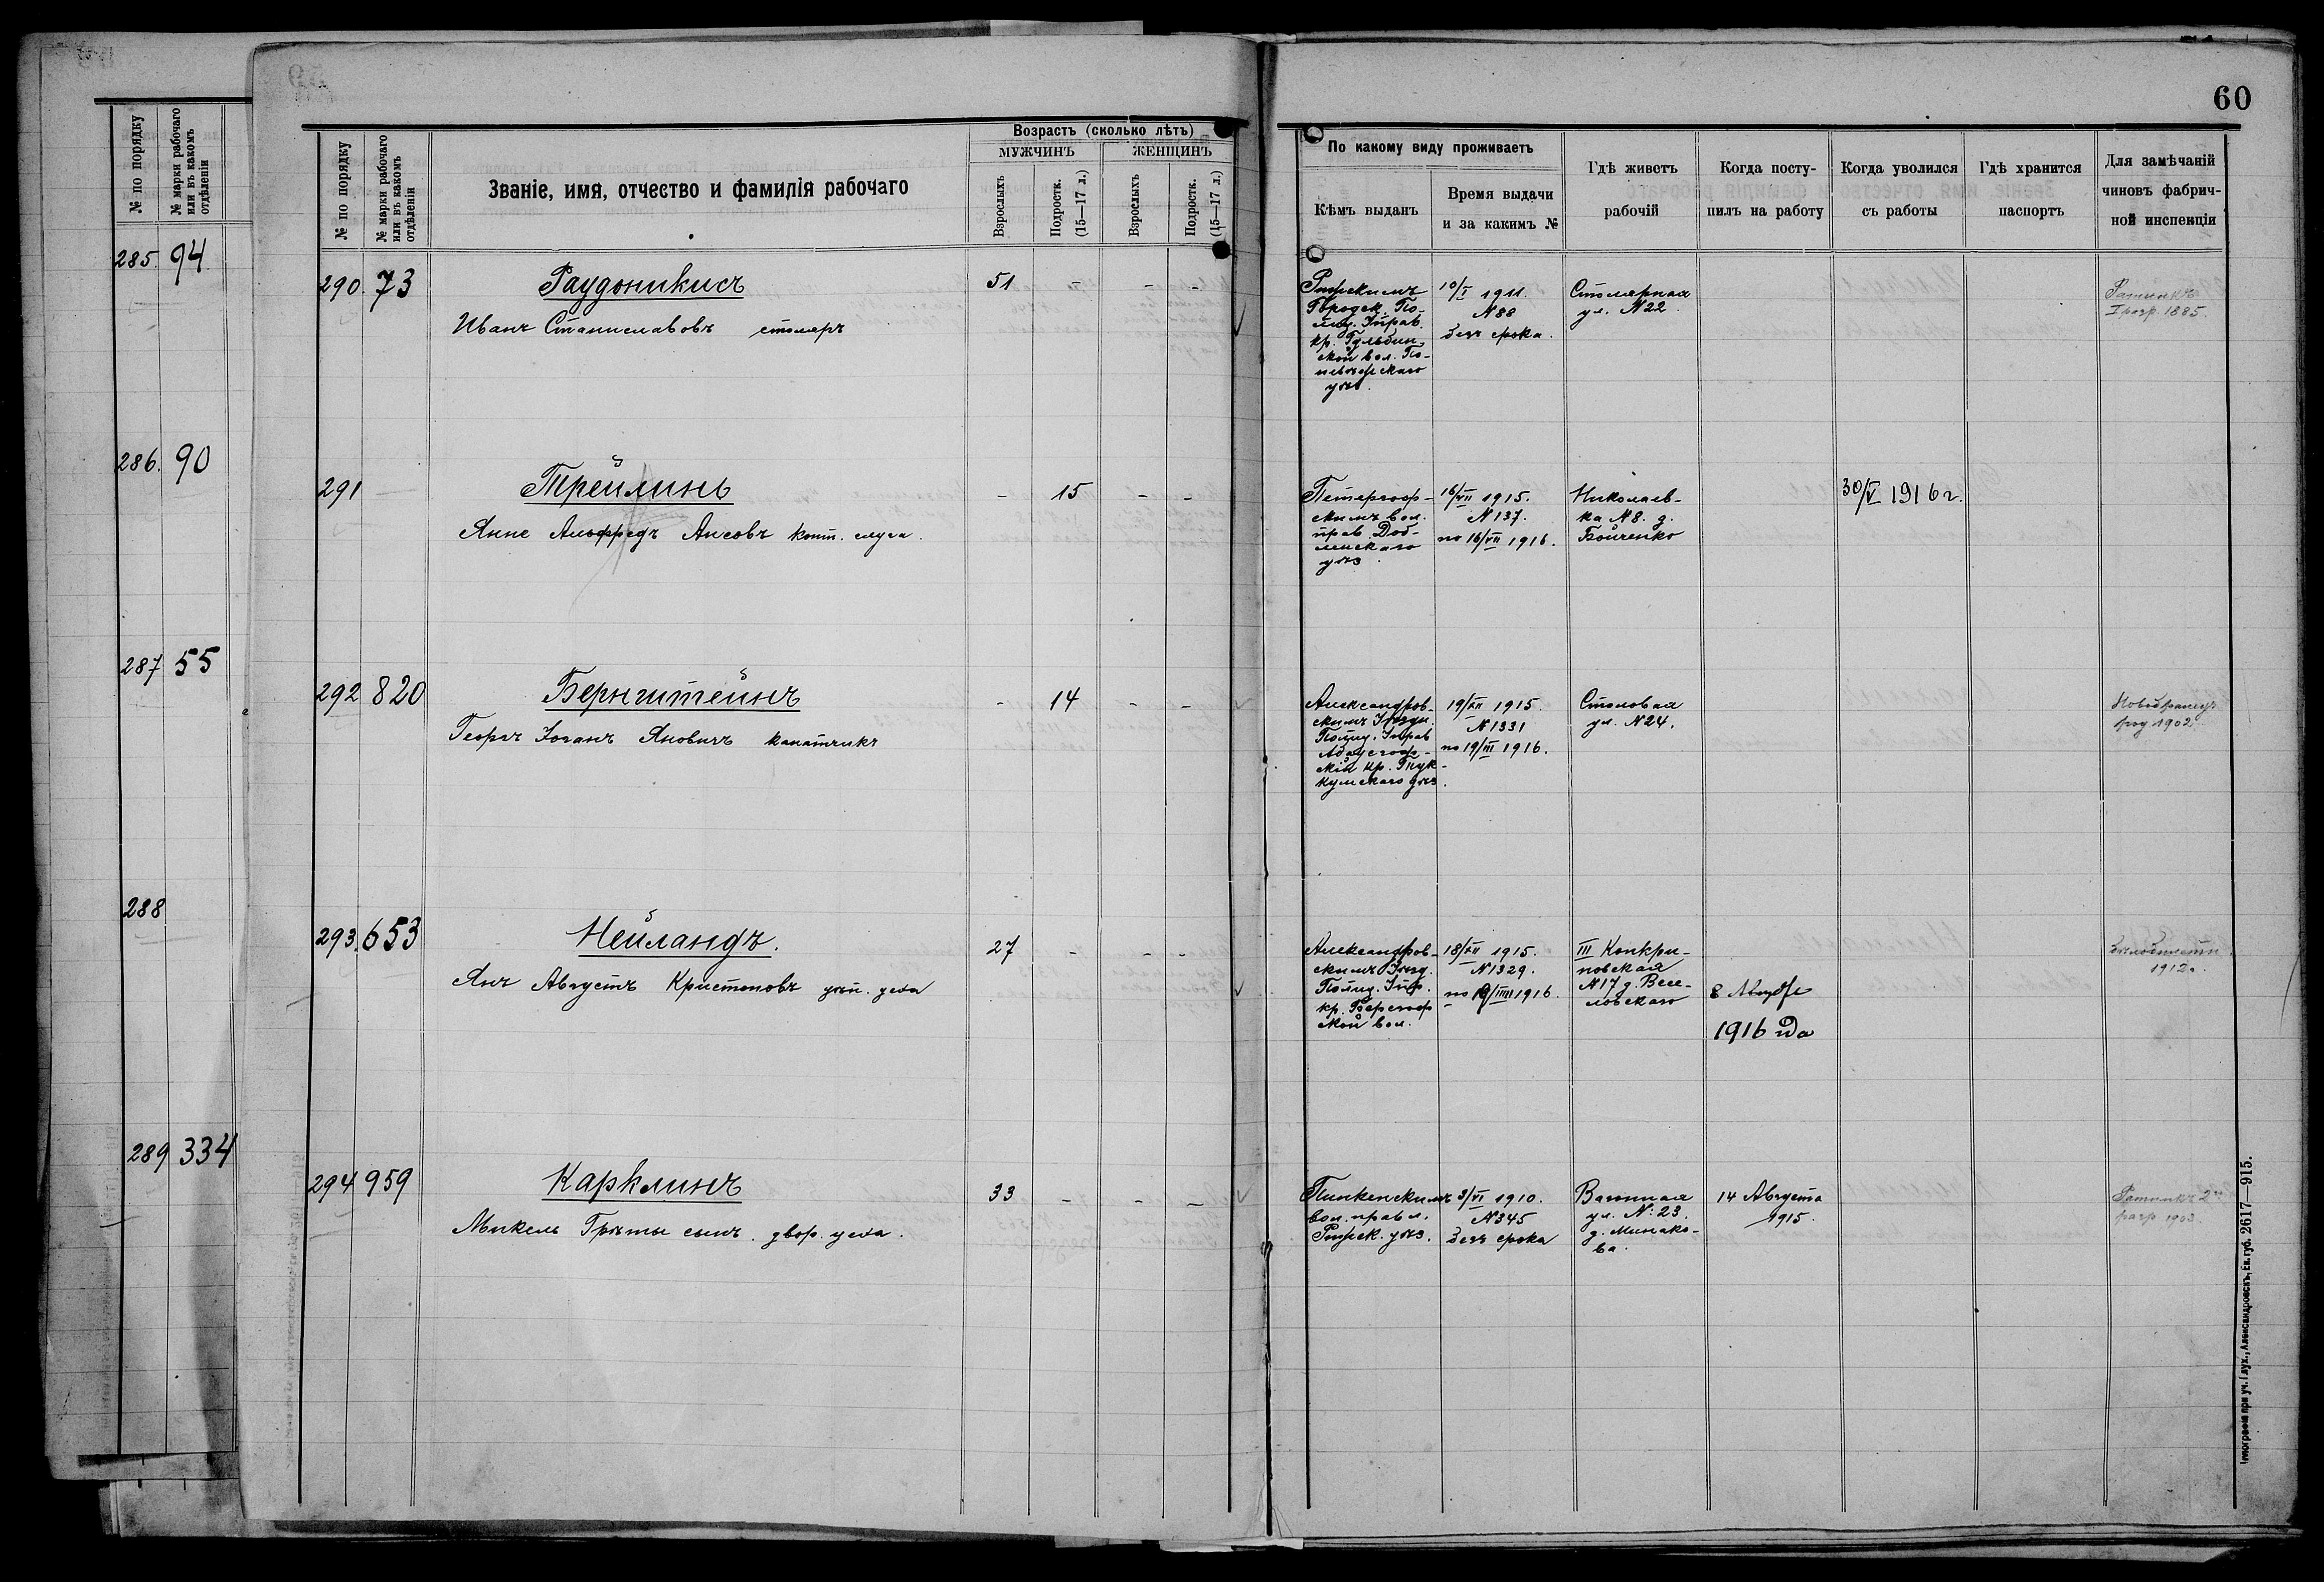 60
№ по порядку
№ марки рабочаго
или въ какомъ
отдѣленіи
285. 94
286. 90
287 55
288
289 334
№ по порядку
№ марки рабочаго
или въ какомъ
отдѣленіи
Званіе, имя, отчество и фамилія рабочаго
Возрастъ (сколько лѣтъ)
МУЖЧИНЪ
ЖЕНЩИНЪ
Взрослыхъ
Подростк.
(15—17 л.)
Взрослыхъ
Подростк.
(15—17 л.)
По какому виду проживаетъ
Кѣмъ выданъ
Время выдачи
и за какимъ №
Гдѣ живетъ
рабочій
Когда посту-
пилъ на работу
Когда уволился
съ работы
Гдѣ хранится
паспортъ
Для замѣчаній
чиновъ фабрич-
ной инспекціи
290. 73
Раудоникисъ
Иванъ Станиславовъ столяръ
51 - - -
Рижскимъ
Городск. По-
лиц. Управ.
кр. Гульбин-
ской вол. По-
невѣжскаго
уѣз.
10/I 1911.
№ 88
безъ срока.
Столярная
ул. № 22.
Ратникъ
I разр. 1885.
291
Трейлинь
Янис Альфредъ Ансовъ конт. слуга.
- 15 - -
Петергоф-
скимъ вол.
прав. Доб-
ленскаго
уѣз.
16/VII 1915.
№ 137.
по 16/VII 1916.
Николаев-
ка № 8. д.
Бойченко
30/V 1916 г.
292 820
Бернштейнъ
Георгъ Іоганъ Яновичъ канатчикъ
- 14 - -
Александров-
скимъ Уѣздн.
Полиц. Управ
кр. Тук-
кумскаго уѣз.
19/XII 1915.
№ 1331
по 19/III 1916.
Столовая
ул. № 24.
Новобранецъ
род 1902
293. 653
Нейландъ.
Янъ Августъ Кристоповъ цеха
27 - - -
Александров-
скимъ Уѣзд.
Полиц. Упр.
кр. Бергоф
ской вол.
18/XII 1915.
№ 1329.
1916.
III Конкри-
новская
№ 17 д. Весе-
ловскаго
8
1916 года
1912 г.
294 959
Карклинъ
Микель Грѣты сынъ. двор. цеха.
33 - - -
Пинкенскимъ
вол. правл.
Рижск. уѣз.
3/VI 1910.
№ 345
безъ срока
Вагонная
ул. №: 23.
д. Минако-
ва.
14 Августа
1915.
Ратникъ 2го
разр 1903
Типографія при уч. Глух., Александровскъ, Ек. губ. 2617—915.